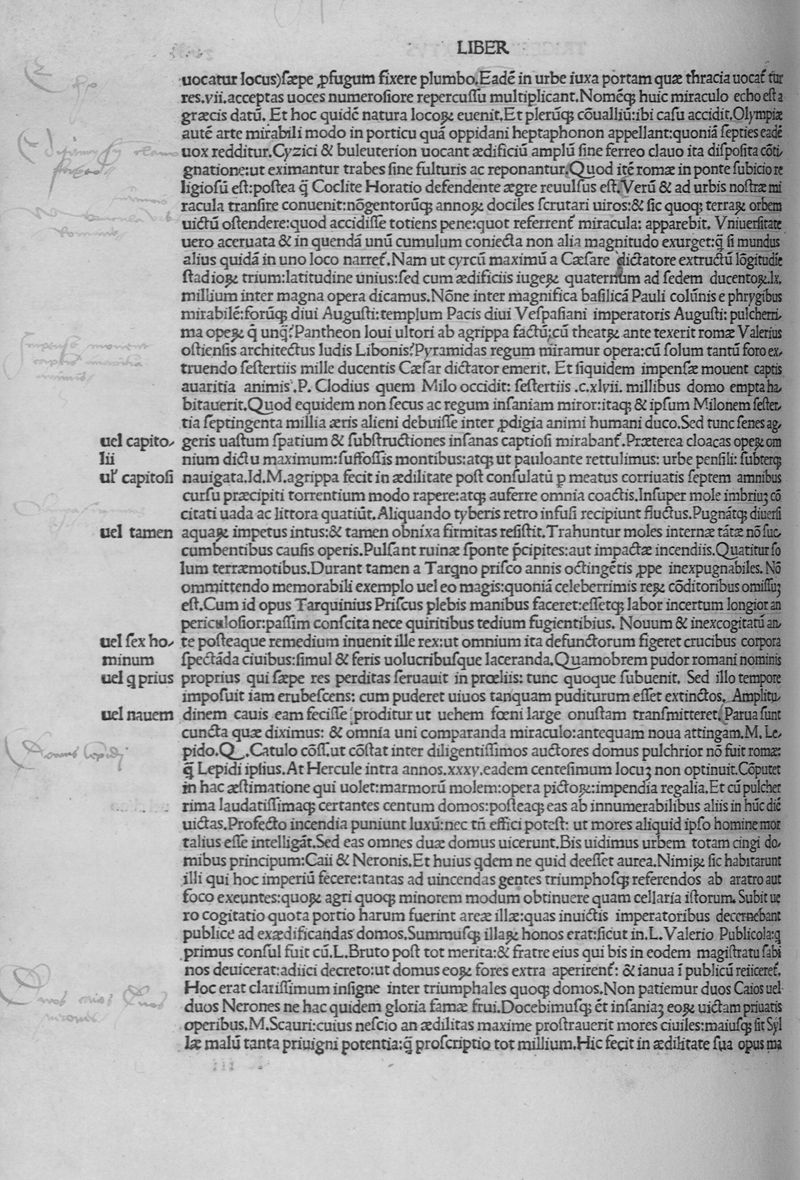 LIBER
uocatur locus)sæpe ꝓfugum fixere plumbo.Eadē in urbe iuxa portam quæ thracia uocat̃ tur
res.vii.acceptas uoces numerosiore repercussu multiplicant.Nomēqꝫ huic miraculo echo est a
græcis datū. Et hoc quidē natura locoꝝ euenit.Et plerūqꝫ cōualliū:ibi casu accidit.Olympiæ
autē arte mirabili modo in porticu quā oppidani heptaphonon appellant:quoniā septies eadē
uox redditur.Cyzici & buleuterion uocant ædificiū amplū sine ferreo clauo ita disposita cōti,
gnatione:ut eximantur trabes sine fulturis ac reponantur.Quod itē romæ in ponte sublicio re
ligiosū est:postea q̃ Coclite Horatio defendente ægre reuulsus est.Verū & ad urbis nostræ mi
racula transire conuenit:nōgentorūqꝫ annoꝝ dociles scrutari uiros:& sic quoqꝫ terraꝝ orbem
uictū ostendere:quod accidisse totiens pene:quot referrent̃ miracula: apparebit. Vniuersitate
uero aceruata & in quendā unū cumulum coniecta non alia magnitudo exurget:q̃ si mundus
alius quidā in uno loco narret̃.Nam ut cyrcū maximū a Cæsare dictatore extructū lōgitudie
stadioꝝ trium:latitudine unius:sed cum ædificiis iugeꝝ quaternum ad sedem ducentoꝝ.lx.
millium inter magna opera dicamus.Nōne inter magnifica basilicā Pauli colūnis e phrygibus
mirabilē:forūqꝫ diui Augusti:templum Pacis diui Vespasiani imperatoris Augusti: pulcherri,
ma opeꝝ q̃ unq̃?Pantheon Ioui ultori ab agrippa factū:cū theatꝝ ante texerit romæ Valerius
ostiensis architectus ludis Libonis?Pyramidas regum miramur opera:cū solum tantū foro ex,
truendo sestertiis mille ducentis Cæsar dictator emerit. Et siquidem impensæ mouent captis
auaritia animis.P. Clodius quem Milo occidit: sestertiis .c.xlvii. millibus domo empta ha,
bitauerit.Quod equidem non secus ac regum insaniam miror:itaqꝫ & ipsum Milonem sester,
tia septingenta millia æris alieni debuisse inter ꝓdigia animi humani duco.Sed tunc senes ag,
uel capito,
lii
geris uastum spatium & substructiones insanas captiosi mirabant̃.Præterea cloacas opeꝝ om
nium dictu maximum:suffossis montibus:atqꝫ ut pauloante rettulimus: urbe pensili: subterqꝫ
ul̃ capitosi
nauigata.Id.M.agrippa fecit in ædilitate post consulatū p meatus corriuatis septem amnibus
cursu præcipiti torrentium modo rapere:atqꝫ auferre omnia coactis.Insuper mole imbriuꝫ cō
citati uada ac littora quatiūt.Aliquando tyberis retro infusi recipiunt fluctus.Pugnātqꝫ diuersi
uel tamen
aquaꝝ impetus intus:& tamen obnixa firmitas resistit.Trahuntur moles internæ tātæ nō suc,
cumbentibus causis operis.Pulsant ruinæ sponte p̄cipites:aut impactæ incendiis.Quatitur so
lum terræmotibus.Durant tamen a Tarqno prisco annis octingētis ꝓpe inexpugnabiles. Nō
ommittendo memorabili exemplo uel eo magis:quoniā celeberrimis reꝝ cōditoribus omissuꝫ
est.Cum id opus Tarquinius Priscus plebis manibus faceret:essetqꝫ labor incertum longior an
periculosior:passim conscita nece quiritibus tedium fugientibius. Nouum & inexcogitatū an,
uel sex ho,
minum
te posteaque remedium inuenit ille rex:ut omnium ita defunctorum figeret crucibus corpora
spectāda ciuibus:simul & feris uolucribusque laceranda.Quamobrem pudor romani nominis
uel q prius
proprius qui sæpe res perditas seruauit in prœliis: tunc quoque subuenit. Sed illo tempore
imposuit iam erubescens: cum puderet uiuos tanquam puditurum esset extinctos. Amplitu,
uel nauem
dinem cauis eam fecisse proditur ut uehem fœni large onustam transmitteret.Parua sunt
cuncta quæ diximus: & omnia uni comparanda miraculo:antequam noua attingam.M. Le,
pido.Q. Catulo cōss.ut cōstat inter diligentissimos auctores domus pulchrior nō fuit romæ:
q̃ Lepidi ipsius.At Hercule intra annos.xxxv.eadem centesimum locuꝫ non optinuit.Cōputet
in hac æstimatione qui uolet:marmorū molem:opera pictoꝝ:impendia regalia.Et cū pulcher
rima laudatissimaqꝫ certantes centum domos:posteaqꝫ eas ab innumerabilibus aliis in hūc diē
uictas.Profecto incendia puniunt luxū:nec tn̄ effici potest: ut mores aliquid ipso homine mor
talius esse intelligāt.Sed eas omnes duæ domus uicerunt.Bis uidimus urbem totam cingi do,
mibus principum:Caii & Neronis.Et huius qdem ne quid deesset aurea.Nimiꝝ sic habitarunt
illi qui hoc imperiū fecere:tantas ad uincendas gentes triumphosqꝫ referendos ab aratro aut
foco exeuntes:quoꝝ agri quoqꝫ minorem modum obtinuere quam cellaria istorum.Subit ue
ro cogitatio quota portio harum fuerint areæ illæ:quas inuictis imperatoribus decernebant
publice ad exædificandas domos.Summusqꝫ illaꝝ honos erat:sicut in.L. Valerio Publicola:q
primus consul fuit cū.L.Bruto post tot merita:& fratre eius qui bis in eodem magistratu sabi
nos deuicerat:adiici decreto:ut domus eoꝝ fores extra aperirent̃: & ianua ī publicū reiiceret̃.
Hoc erat clarissimum insigne inter triumphales quoqꝫ domos.Non patiemur duos Caios uel
duos Nerones ne hac quidem gloria famæ frui.Docebimusqꝫ ēt insaniaꝫ eoꝝ uictam priuatis
operibus.M.Scauri:cuius nescio an ædilitas maxime prostrauerit mores ciuiles:maiusqꝫ sit Syl
læ malū tanta priuigni potentia:q̃ proscriptio tot millium.Hic fecit in ædilitate sua opus ma